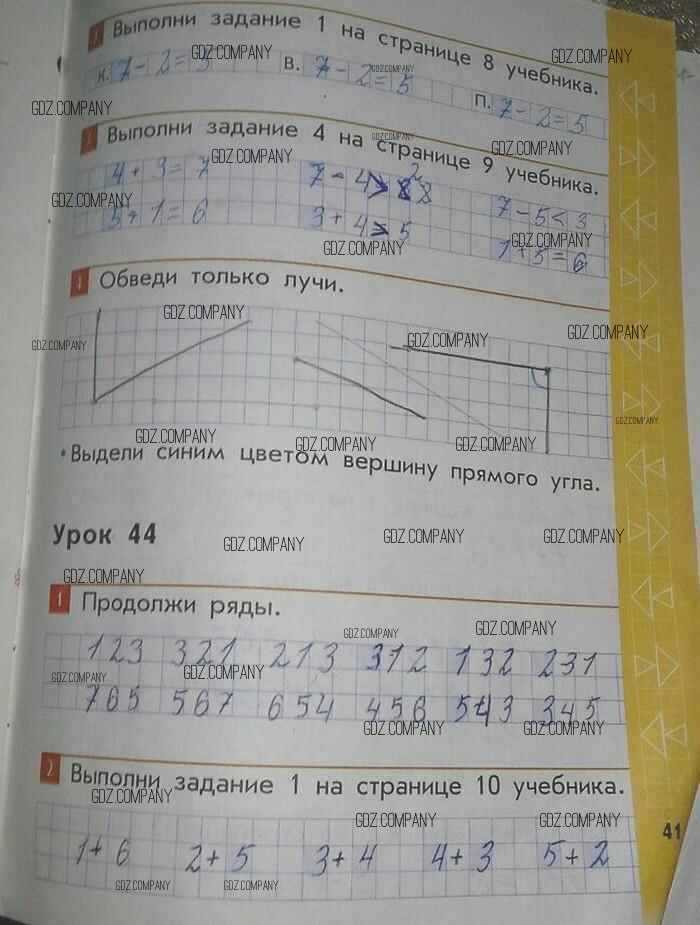 1 Выполни задание 1 на странице 8 учебника.
К. 7 - 2 = 5 В. 7 - 2 = 5 П. 7 - 2 = 5
2 Выполни задание 4 на странице 9 учебника.
4 + 3 = 7 7 - 4 > 2 7 - 5 < 3
5 + 1 = 6 3 + 4 > 5 1 + 5 = 6
Обведи только лучи.
• Выдели синим цветом вершину прямого угла.
Урок 44
1 Продолжи ряды.
123 321 213 312 132 231
765 567 654 456 543 345
2 Выполни задание 1 на странице 10 учебника.
41
1 + 6 2 + 5 3 + 4 4 + 3 5 + 2
GDZ.COMPANY